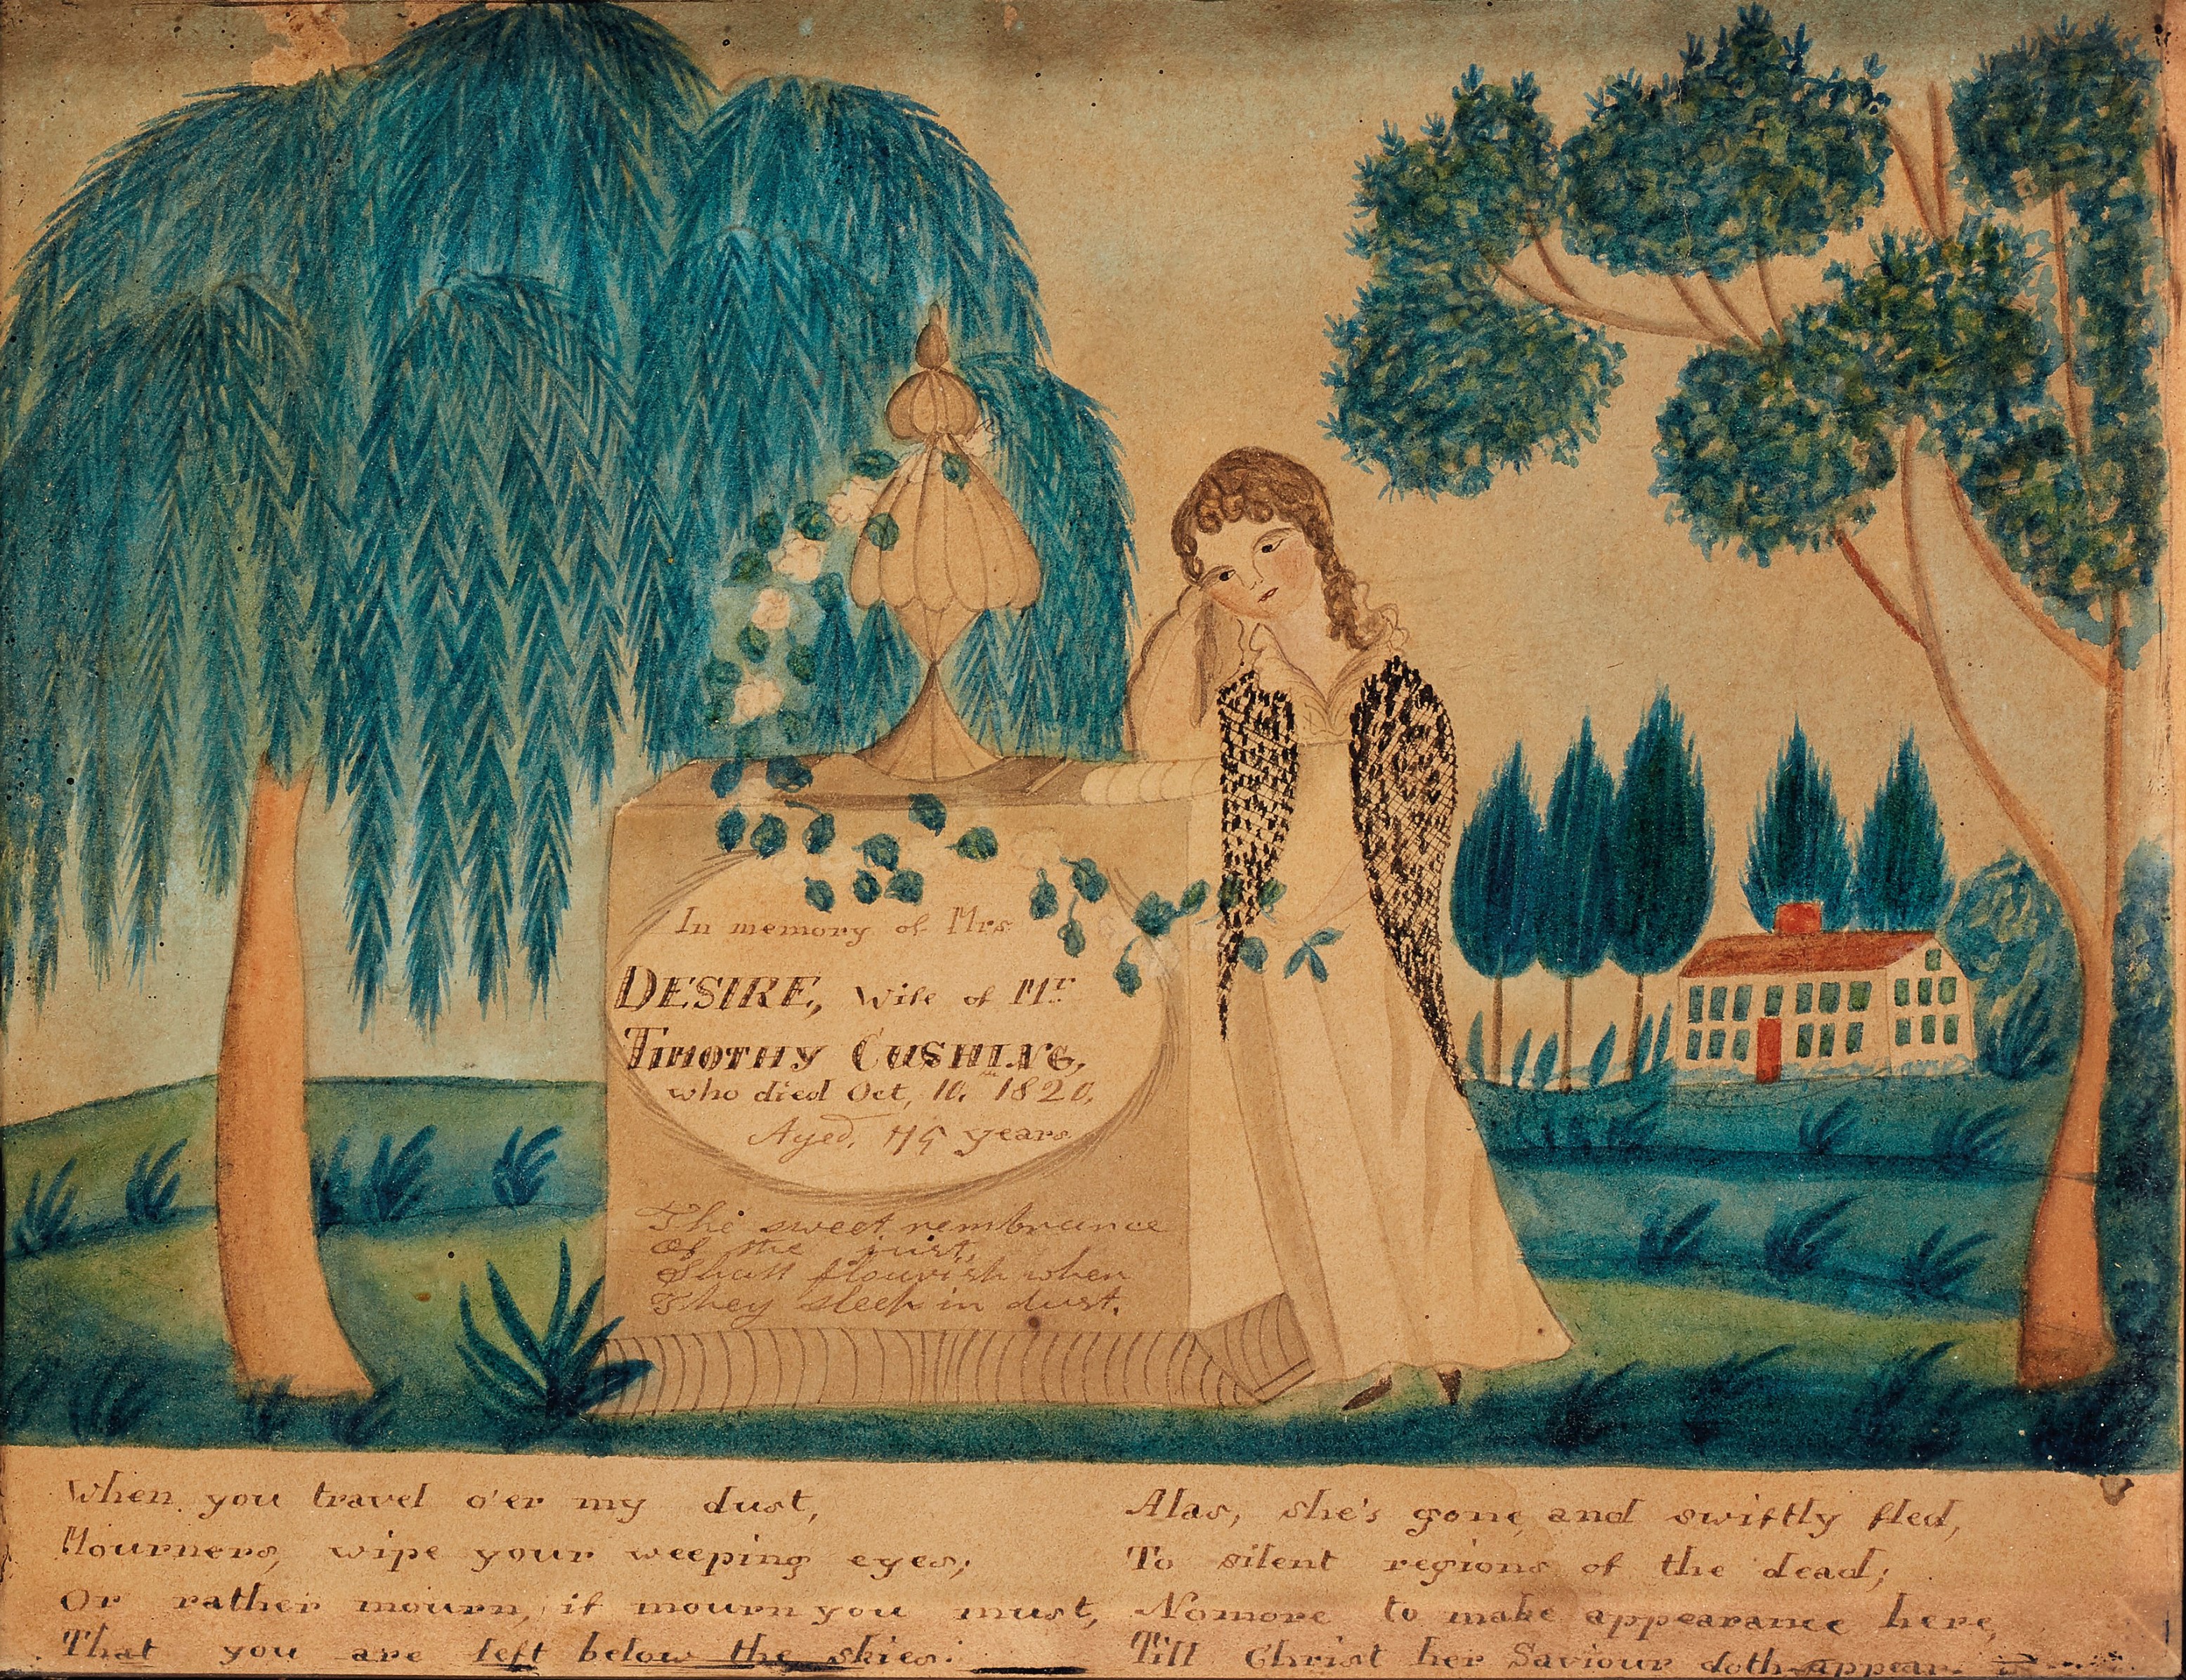 In memory of Mrs
DESIRE, Wife of Mr
TIMOTHY CUSHING,
who died Oct, 10. 1820.
Aged, years
The sweet rembrance
Of the just,
Shall flourish when
They sleep in dust.
When you travel o'er my dust,
Mourners, wipe your weeping eyes;
Or rather mourn, if mourn you must,
That you are left below the skies.
Alas, she's gone and swiftly fled,
To silent regions of the dead;
Nomore to make appearance here,
Till Christ her Saviour doth appear.